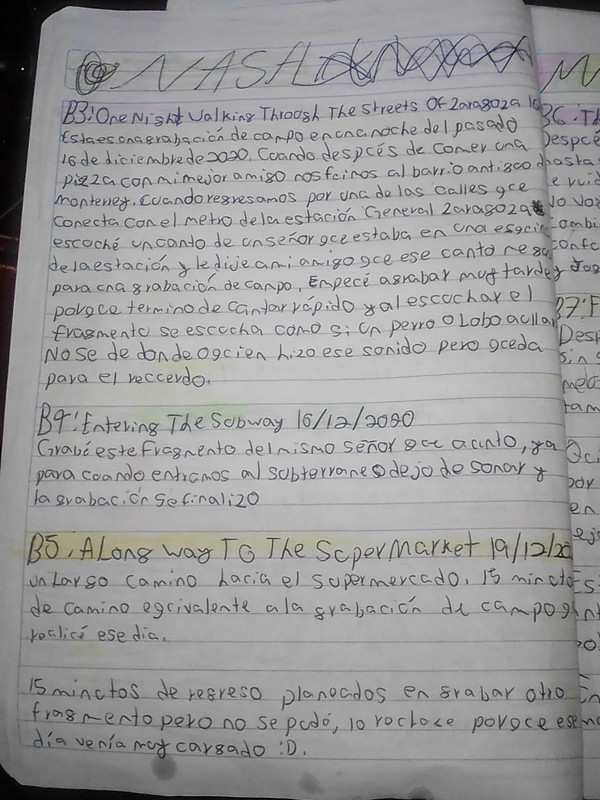 NASA
B3: One Night Walking Through The Streets Of Zaragoza 16
Esta es una grabación de campo en una noche del pasado
16 de diciembre de 2020. Cuando después de comer una
pizza con mi mejor amigo nos fuimos al barrio antiguo
monterrey. Cuando regresamos por una de las calles que
conecta con el metro de la estación General Zaragoza
escuché un canto de un señor que estaba en una
de la estación y le dije a mi amigo que ese canto
para una grabación de campo, Empecé a grabar muy tarde
porque termino de cantar rápido y al escuchar el
fragmento se escucha como si un perro o lobo aullar
No se de donde o quien hizo ese sonido pero queda
para el recuerdo.
B4: Entering The Subway 16/12/2020
Grabé este fragmento del mismo señor que
para cuando entramos al subterraneo dejo de sonar y
la grabación se finalizo
B5. A Long way To The Supermarket 19/12/20
un Largo camino hacia el supermercado. 15 minutos
de camino equivalente a la grabación de campo
realicé ese dia.
15 minutos de regreso planeados en grabar otro
fragmento pero no se pudó, lo porque ese
día venía muy cargado :D.